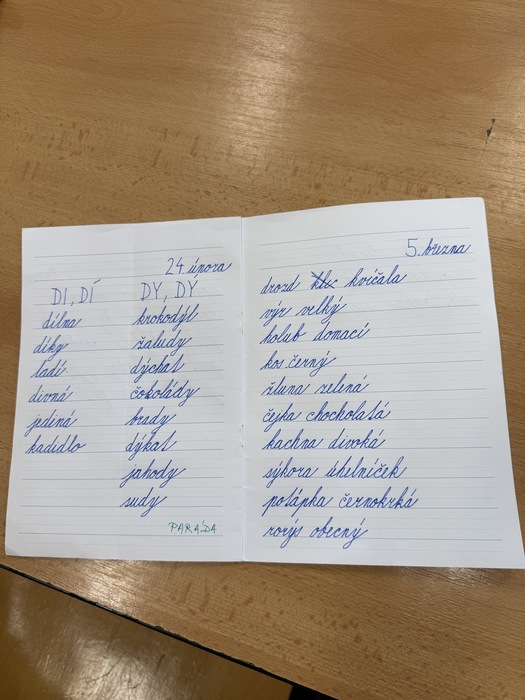 24. února
DI, DÍ DY, DY
dílna krokodýl
díky žaludy
ladí dýchat
divná čokolády
jediná brady
kadidlo dýkat
jahody
sudy
PARÁDA
5. března
drozd kvíčala
výr velký
holub domací
kos černý
žluna zelená
čejka chocholatá
kachna divoká
sýkora úhelníček
potápka černokrká
rorýs obecný